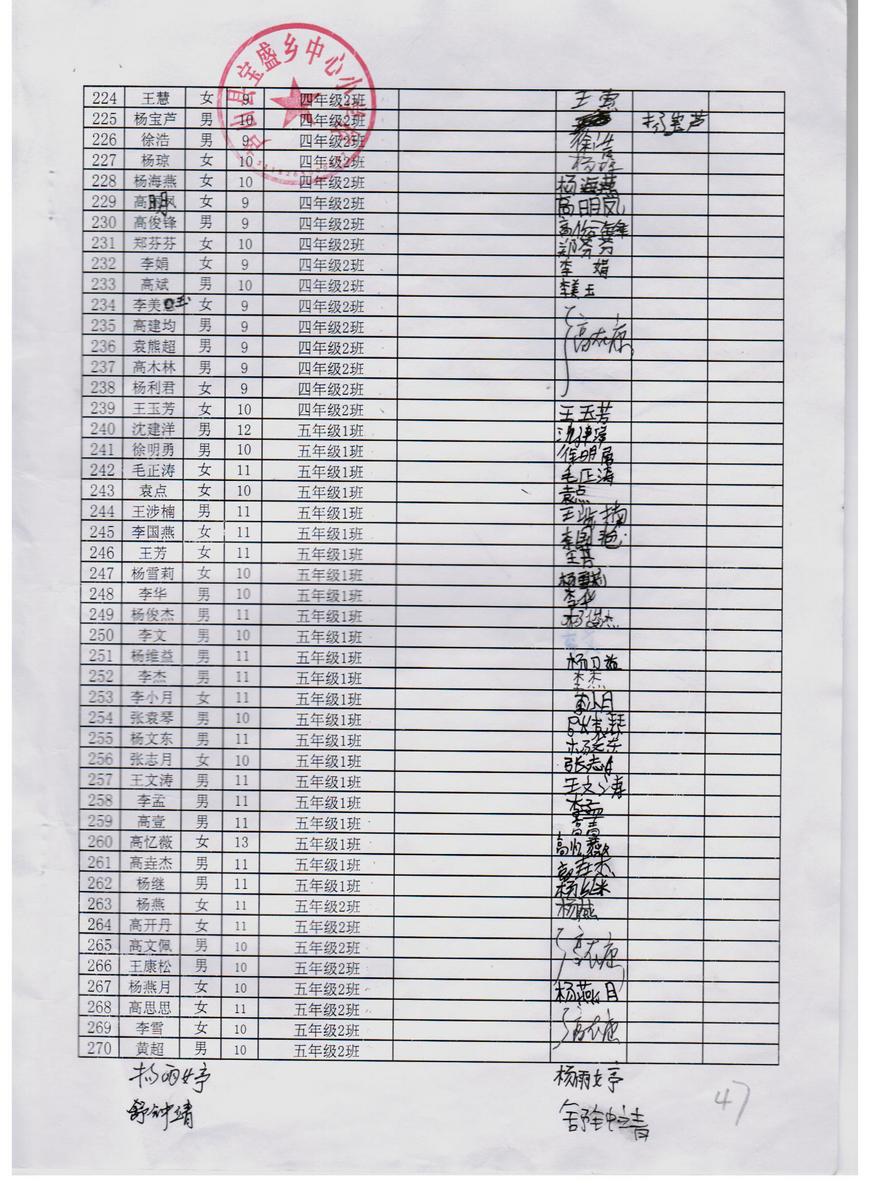 宝盛乡中心小
224 王慧 女 9 四年级2班
225 杨宝芦 男 10 四年级2班 杨宝芦
226 徐浩 男 9 四年级2班 徐浩
227 杨琼 女 10 四年级2班
228 杨海燕 女 10 四年级2班 杨海燕
229 高明凤 女 9 四年级2班 高明凤
230 高俊锋 男 9 四年级2班
231 郑芬芬 女 10 四年级2班 郑芬芬
232 李娟 女 9 四年级2班 李娟
233 高斌 男 10 四年级2班 李美玉
234 李美玉 女 9 四年级2班
235 高建均 男 9 四年级2班
236 袁熊超 男 9 四年级2班
237 高木林 男 9 四年级2班
238 杨利君 女 9 四年级2班
239 王玉芳 女 10 四年级2班 王玉芳
240 沈建洋 男 12 五年级1班
241 徐明勇 男 10 五年级1班
242 毛正涛 女 11 五年级1班 毛正涛
243 袁点 女 10 五年级1班 袁点
244 王涉楠 男 11 五年级1班
245 李国燕 女 11 五年级1班
246 王芳 女 11 五年级1班
247 杨雪莉 女 10 五年级1班 杨雪莉
248 李华 男 10 五年级1班 李华
249 杨俊杰 男 11 五年级1班 杨俊杰
250 李文 男 10 五年级1班
251 杨维益 男 11 五年级1班
252 李杰 男 11 五年级1班 李杰
253 李小月 女 11 五年级1班 李小月
254 张袁琴 男 10 五年级1班
255 杨文东 男 11 五年级1班
256 张志月 女 10 五年级1班 张志月
257 王文涛 男 11 五年级1班 王文涛
258 李孟 男 11 五年级1班 李孟
259 高壹 男 11 五年级1班
260 高忆薇 女 13 五年级1班
261 高垚杰 男 11 五年级1班
262 杨继 男 11 五年级1班 杨继
263 杨燕 女 11 五年级2班 杨燕
264 高开丹 女 11 五年级2班
265 高文佩 男 10 五年级2班
266 王康松 男 10 五年级2班
267 杨燕月 女 10 五年级2班 杨燕月
268 高思思 女 11 五年级2班
269 李雪 女 10 五年级2班
270 黄超 男 10 五年级2班
杨雨婷 杨雨婷
舒钟靖 舒钟靖
47